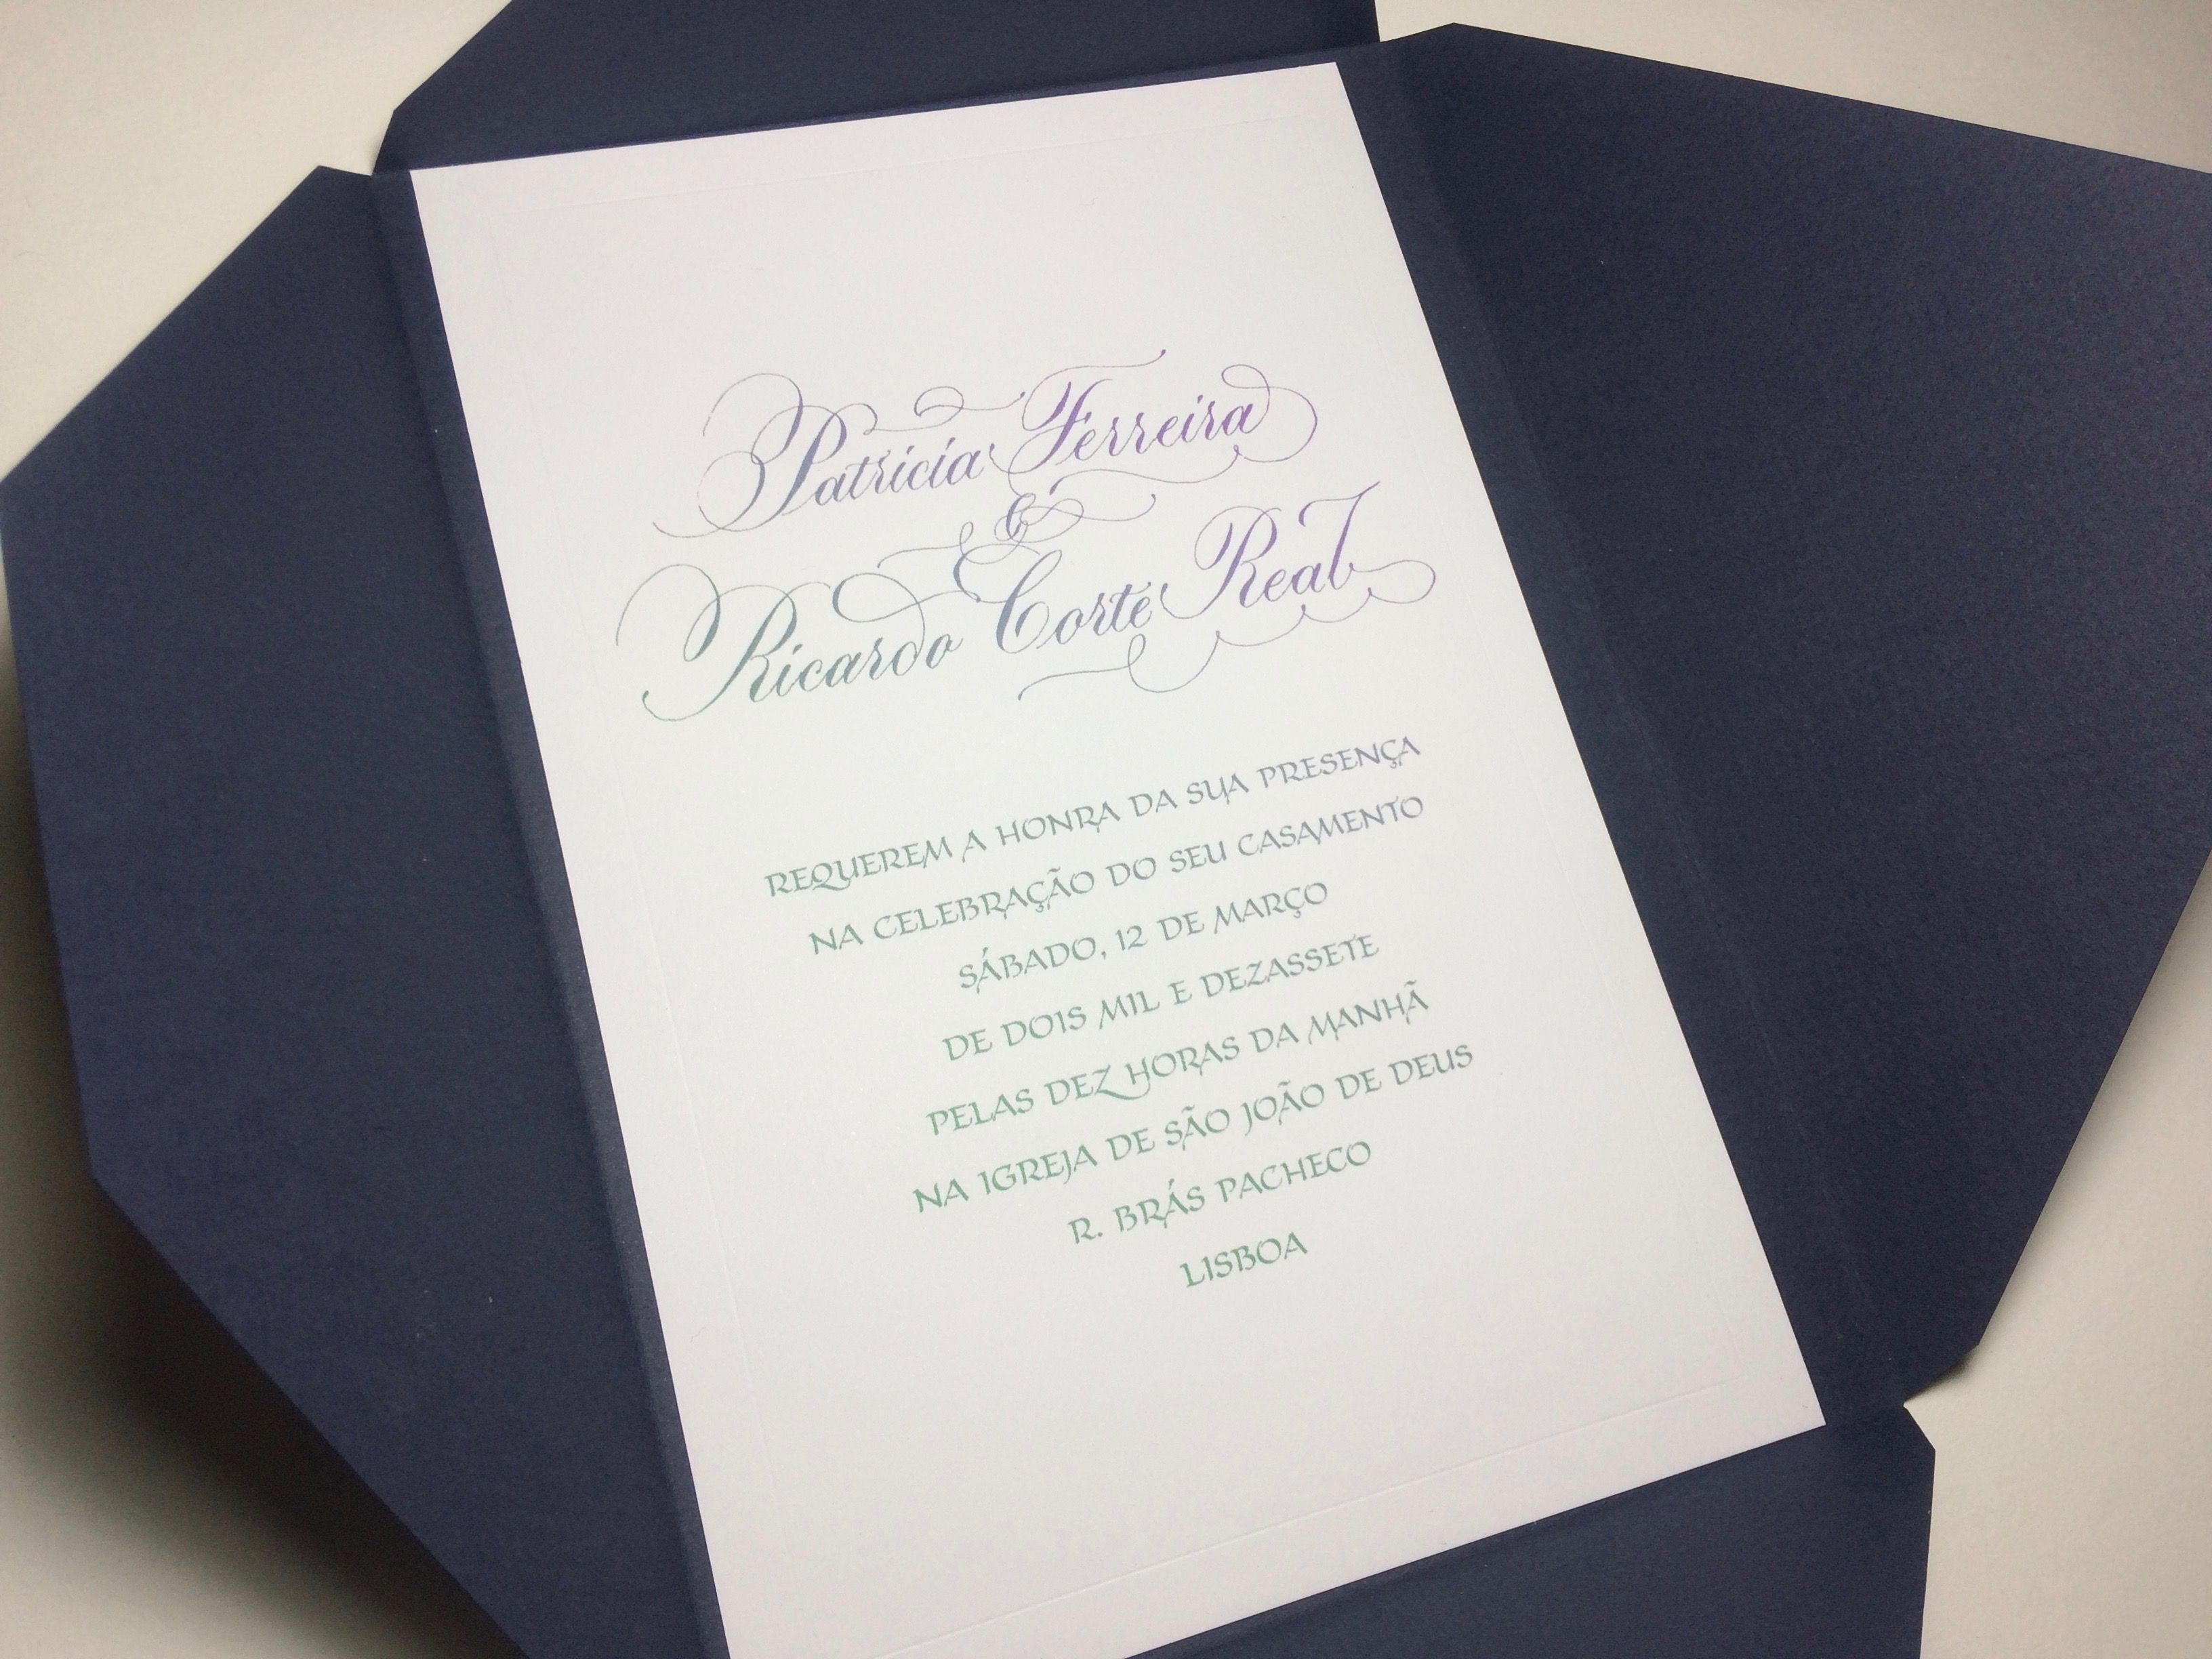 Patrícia Ferreira
&
Ricardo Corte Real
REQUEREM A HONRA DA SUA PRESENÇA
NA CELEBRAÇÃO DO SEU CASAMENTO
SÁBADO, 12 DE MARÇO
DE DOIS MIL E DEZASSETE
PELAS DEZ HORAS DA MANHÃ
NA IGREJA DE SÃO JOÃO DE DEUS
R. BRÁS PACHECO
LISBOA